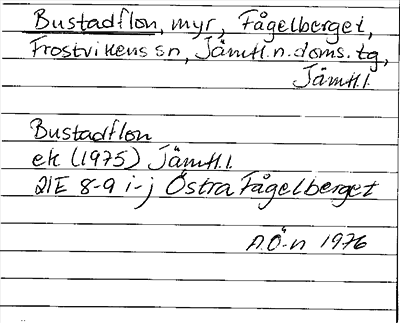 Bustadflon, myr, Fågelberget,
Frostvikens sn, Jämtl.n.doms.tg,
Jämtl.l.
Bustadflon
ek (1975) Jämtl.l.
21E 8-9 i-j Östra Fågelberget
A.Ö-n 1976